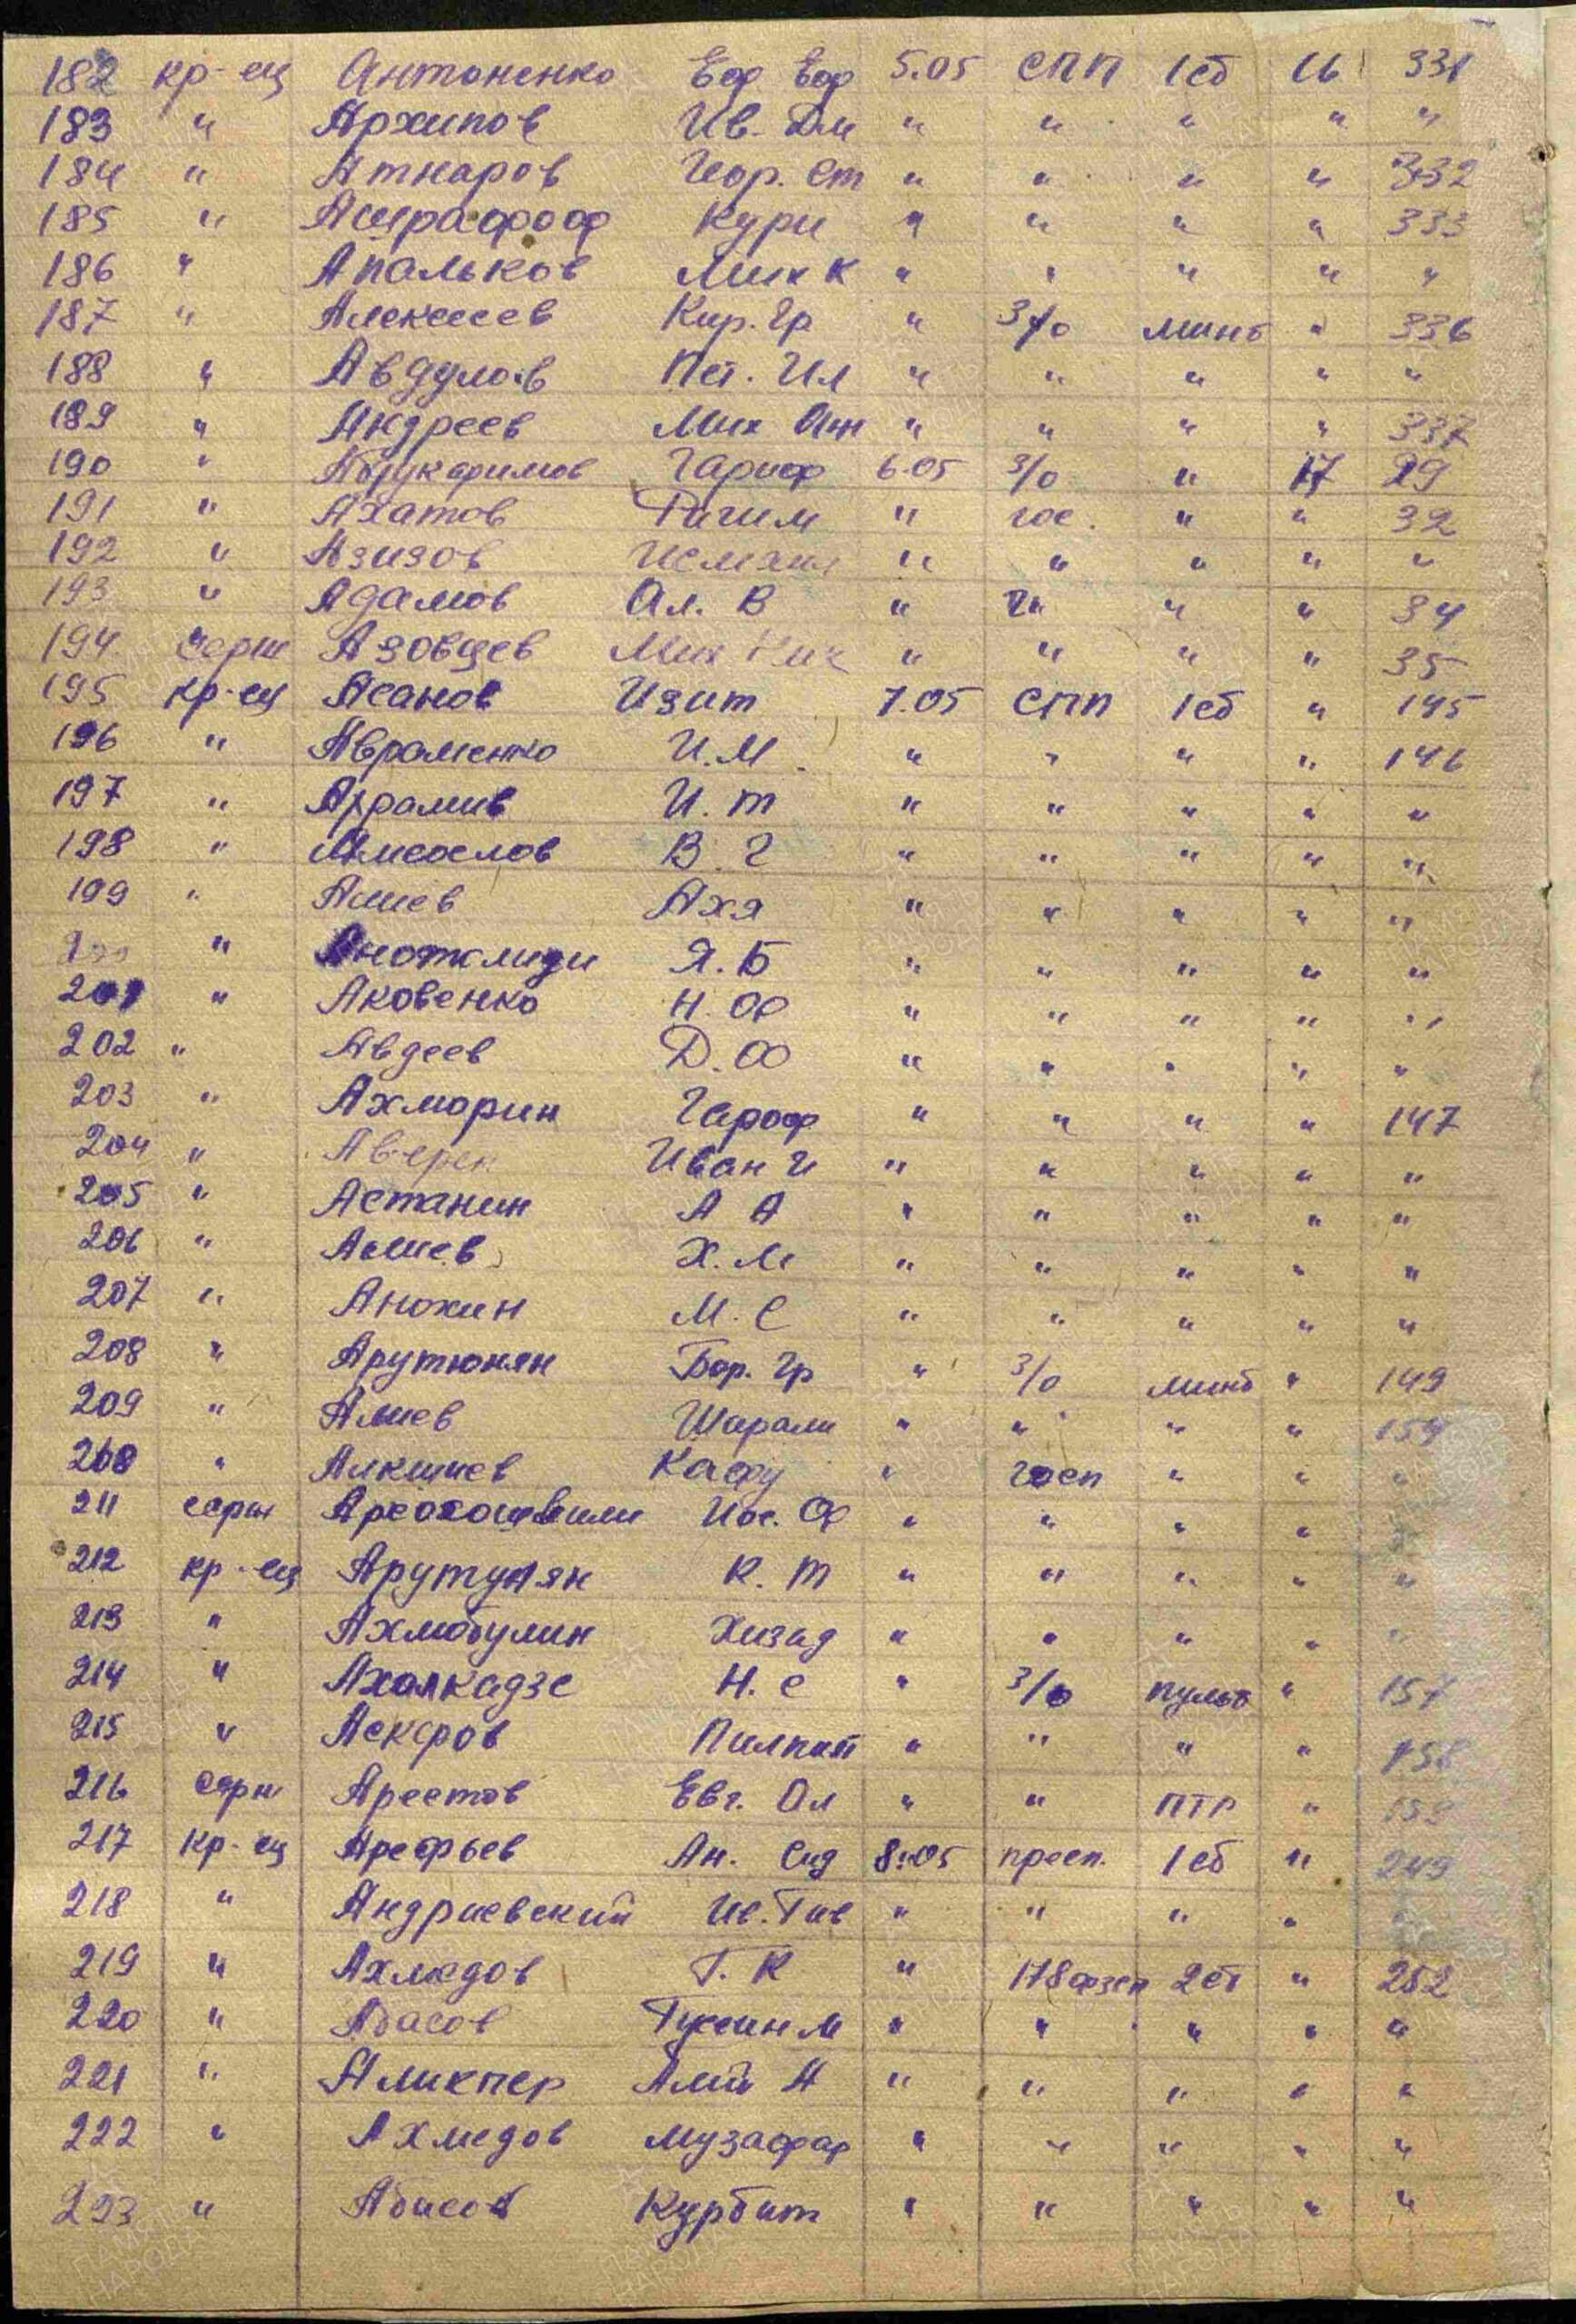 182 кр-ец Антоненко Еф Еф 5.05 СПП 1сб 16 331
183 " Архипов Ив. Дм " " " " "
184 " Аткаров Игор. Ст " " " " 332
185 " Ашрафоф Кури " " " " 333
186 " Апальков Мих К " " " " "
187 " Алексеев Кир. Гр " з/о минб " 336
188 " Авдулов Пет. Ил " " " " "
189 " Андреев Мих " " " " 337
190 " Абдукаримов Гариф 6.05 з/о " 17 29
191 " Ахатов Рагим " гос. " " 32
192 " Азизов Исмаил " " " " "
193 " Адамов Ал. В " " " 34
194 серж Азовцев Мих Ник " " " " 35
195 кр-ец Асанов Изит 7.05 СПП 1сб " 145
196 " Авраменко И.М. " " " " 146
197 " И. т " " " " "
198 " В. Г " " " " "
199 " Алиев Ахя " " " " "
" Я. Б " " " " "
201 " Аковенко Н. Ф " " " " "
202 " Авдеев Д. Ф " " " " "
203 " Ахмарин Гароф " " " " 147
204 " Аверен Иван И " " " " "
205 " Астанин А А " " " " "
206 " Алиев Х. М " " " " "
207 " Анохин М. С " " " " "
208 " Арутюнян Бор. Гр " з/о минб " 149
209 " Алиев Шарали " " " " 154
210 " Кафу " госп " " "
211 серж Иос. Ф " " " " "
212 кр-ец Арутунян К. Т " " " " "
213 " Ахмабулин Хизад " " " " "
214 " Ахалкадзе Н. С " з/о пульб " 157
215 " Аскеров " " " " 158
216 серж Арестов Евг. Ал " " ПТР " 159
217 кр-ец Арефьев Ан. Сид 8.05 пресп. 1сб " 249
218 " Андриевский Ив. " " " "
219 " Ахмедов Г. К " 178 фзсп 2сб " 252
220 " Абасов Гусеин М " " " " "
221 " Аликпер Алий А " " " " "
222 " Ахмедов Музафар " " " " "
223 " Абисов Курбат " " " " "
ПАМЯТЬ НАРОДА